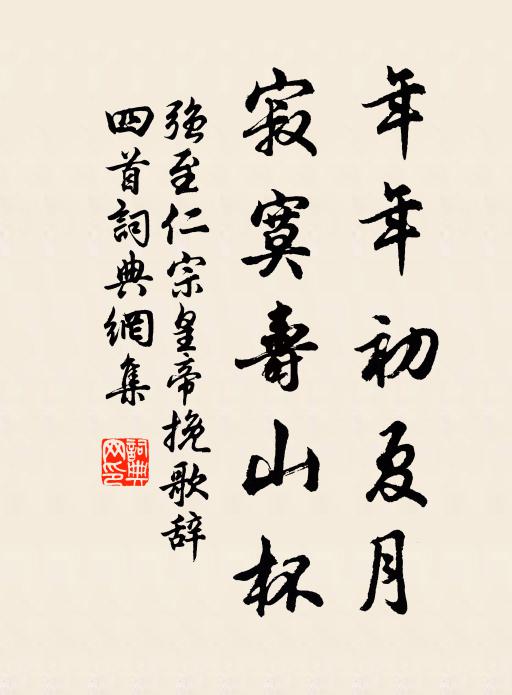 年年初夏月
寂寞壽山杯
強至仁宗皇帝挽歌辞
四首詞典網集
詞典
网印